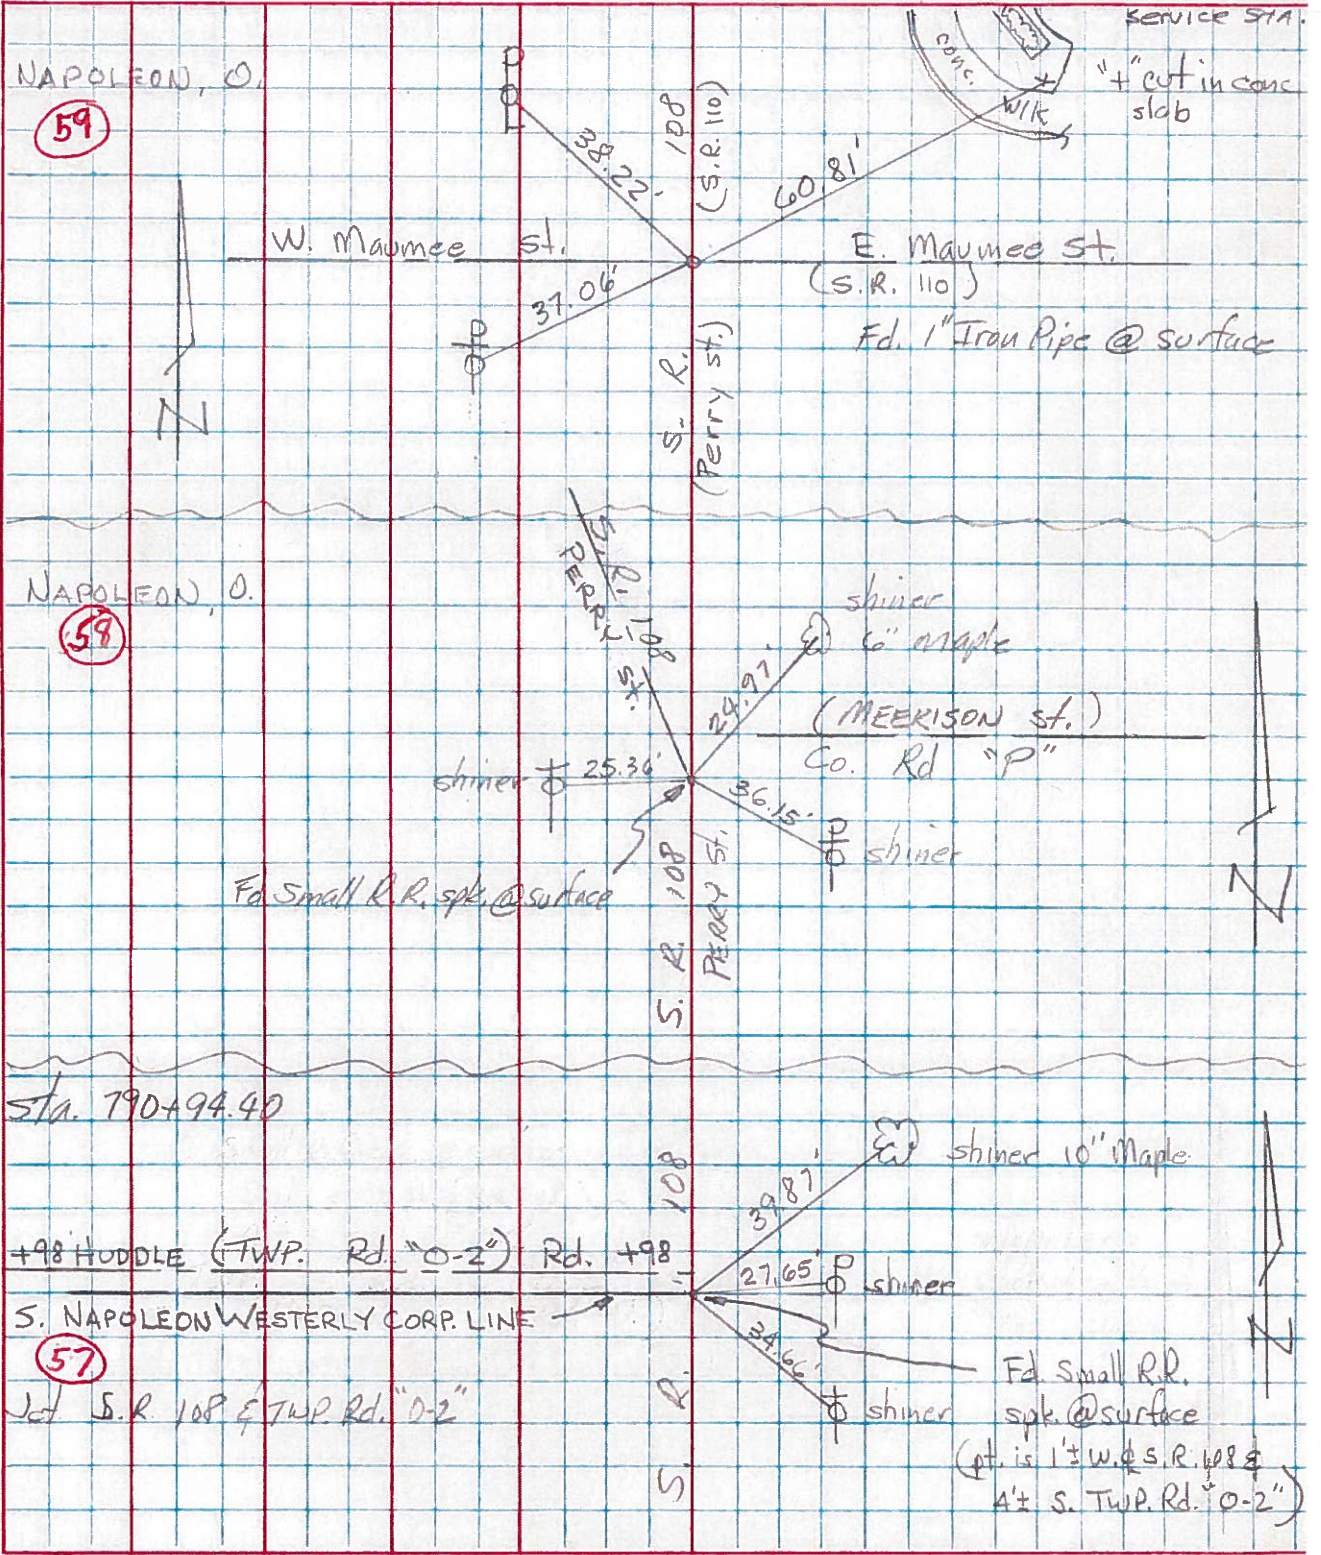 Service STA.
NAPOLEON, O.
59
conc.
"+" cut in conc
slab
W/K
38.22'
108
(S.R. 110)
60.81'
W. Maumee St.
E. Maumee St.
(S.R. 110)
37.06'
Fd. 1" Iron Pipe @ surface
S. R.
(Perry St.)
N
NAPOLEON, O.
58
S. R. 108
PERRY St.
shiner
6" maple
24.97'
(MEEKISON St.)
Co. Rd "P"
shiner
25.36'
36.15'
shiner
Fd Small R.R. spk. @ surface
S. R. 108
PERRY St.
N
Sta. 790+94.40
shiner 10" Maple
39.87'
108
+98 HUDDLE (TWP. Rd. "O-2") Rd. +98
27.65'
shiner
S. NAPOLEON WESTERLY CORP. LINE
34.66'
57
N
Fd. Small R.R.
spk. @ surface
Jct S.R. 108 & TWP. Rd. "O-2"
shiner
S. R.
(pt. is 1'± W. ₵ S.R. 108 &
4'± S. TWP. Rd. "O-2")